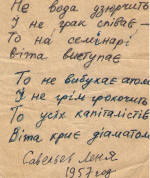 Не вода дзюрчить
І не грак співає —
То на семінарі
Віта виступає
То не вибухає атом
І не грім грохотить
То усіх капіталістів
Віта криє діаматом
Савельєв Леня
1957 год